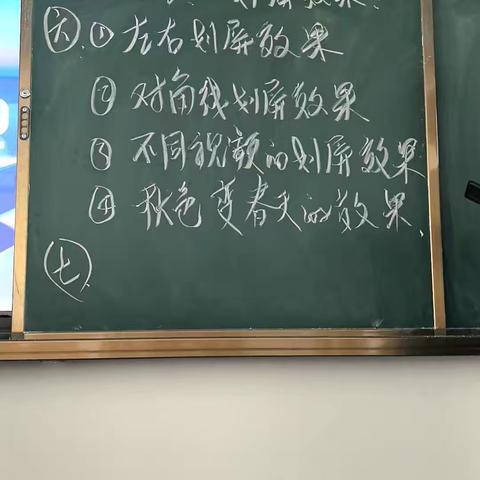 效果.
㊅① 左右划屏效果
② 对角线划屏效果
③ 不同视频的划屏效果
④ 秋色变春天的效果.
㊆